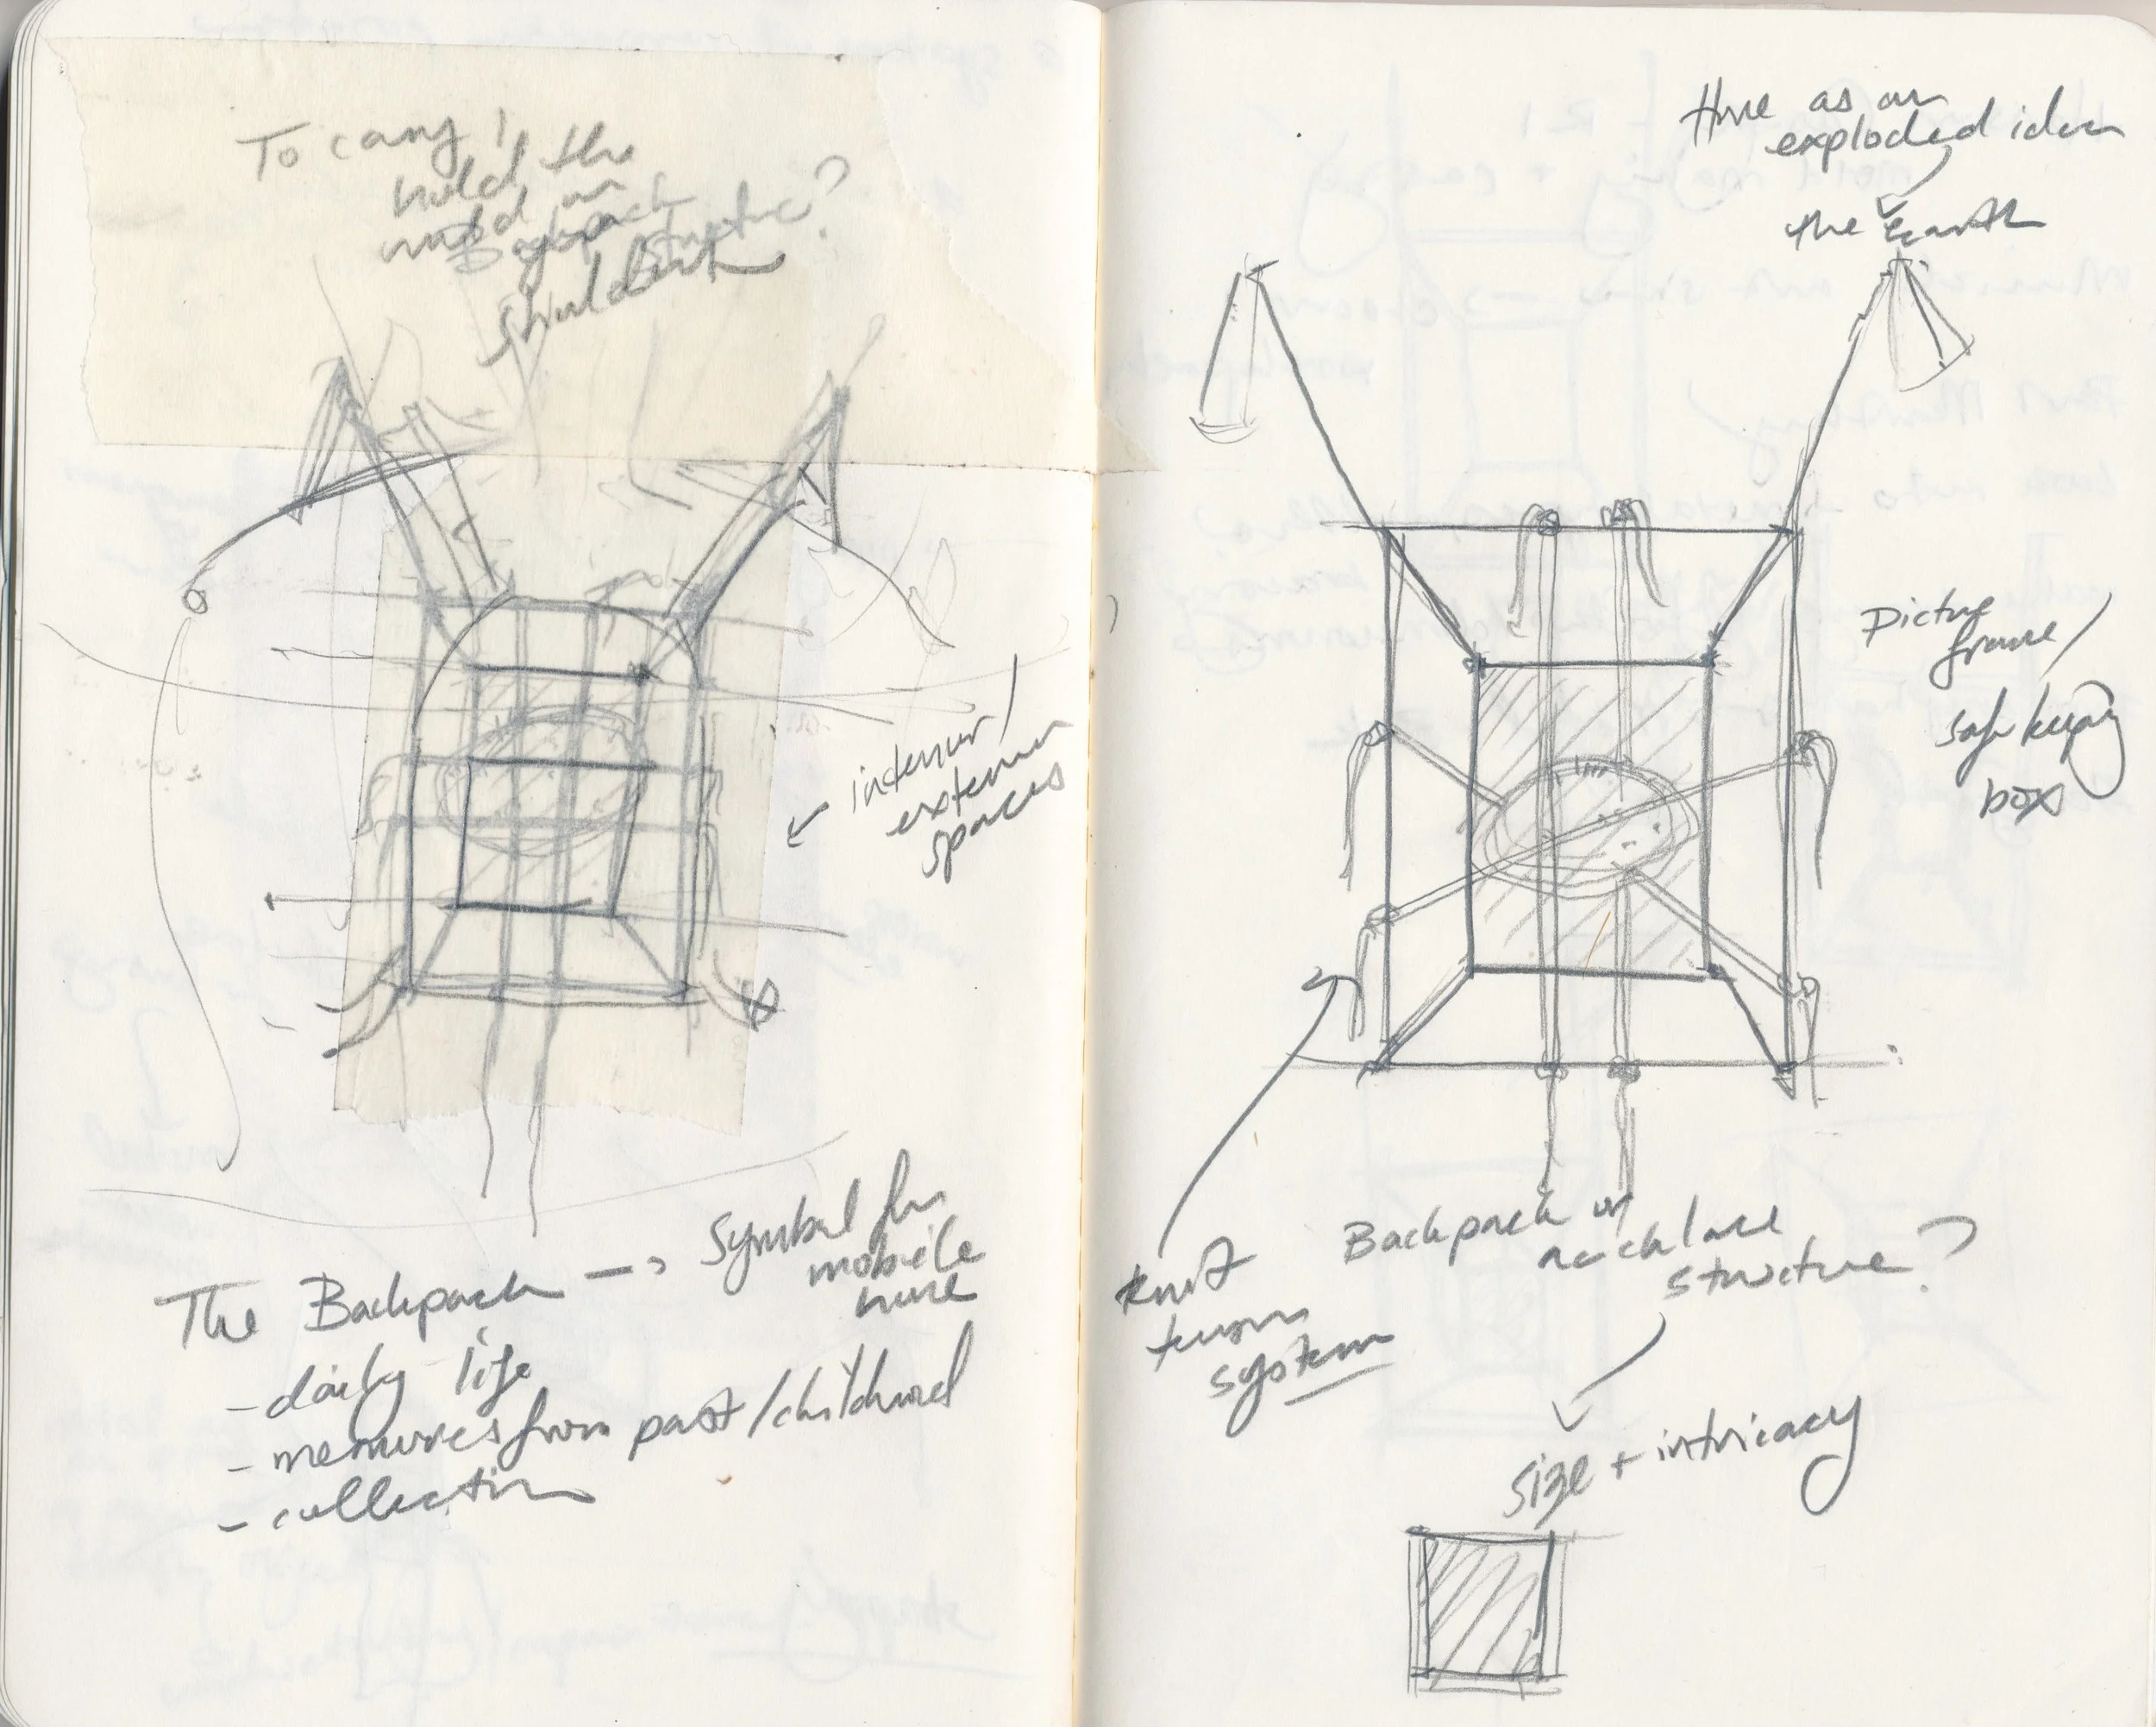 To carry /
hold the
mold on
Backpack
structure?
The Backpack —> Symbol for
mobile
home
- daily life
- memories from past/childhood
- collection
interior/
exterior
spaces
Home as an
exploded idea
the Earth
Picture
frame/
safe keeping
box
knot
tension
system
Backpack or
necklace
structure?
size + intricacy